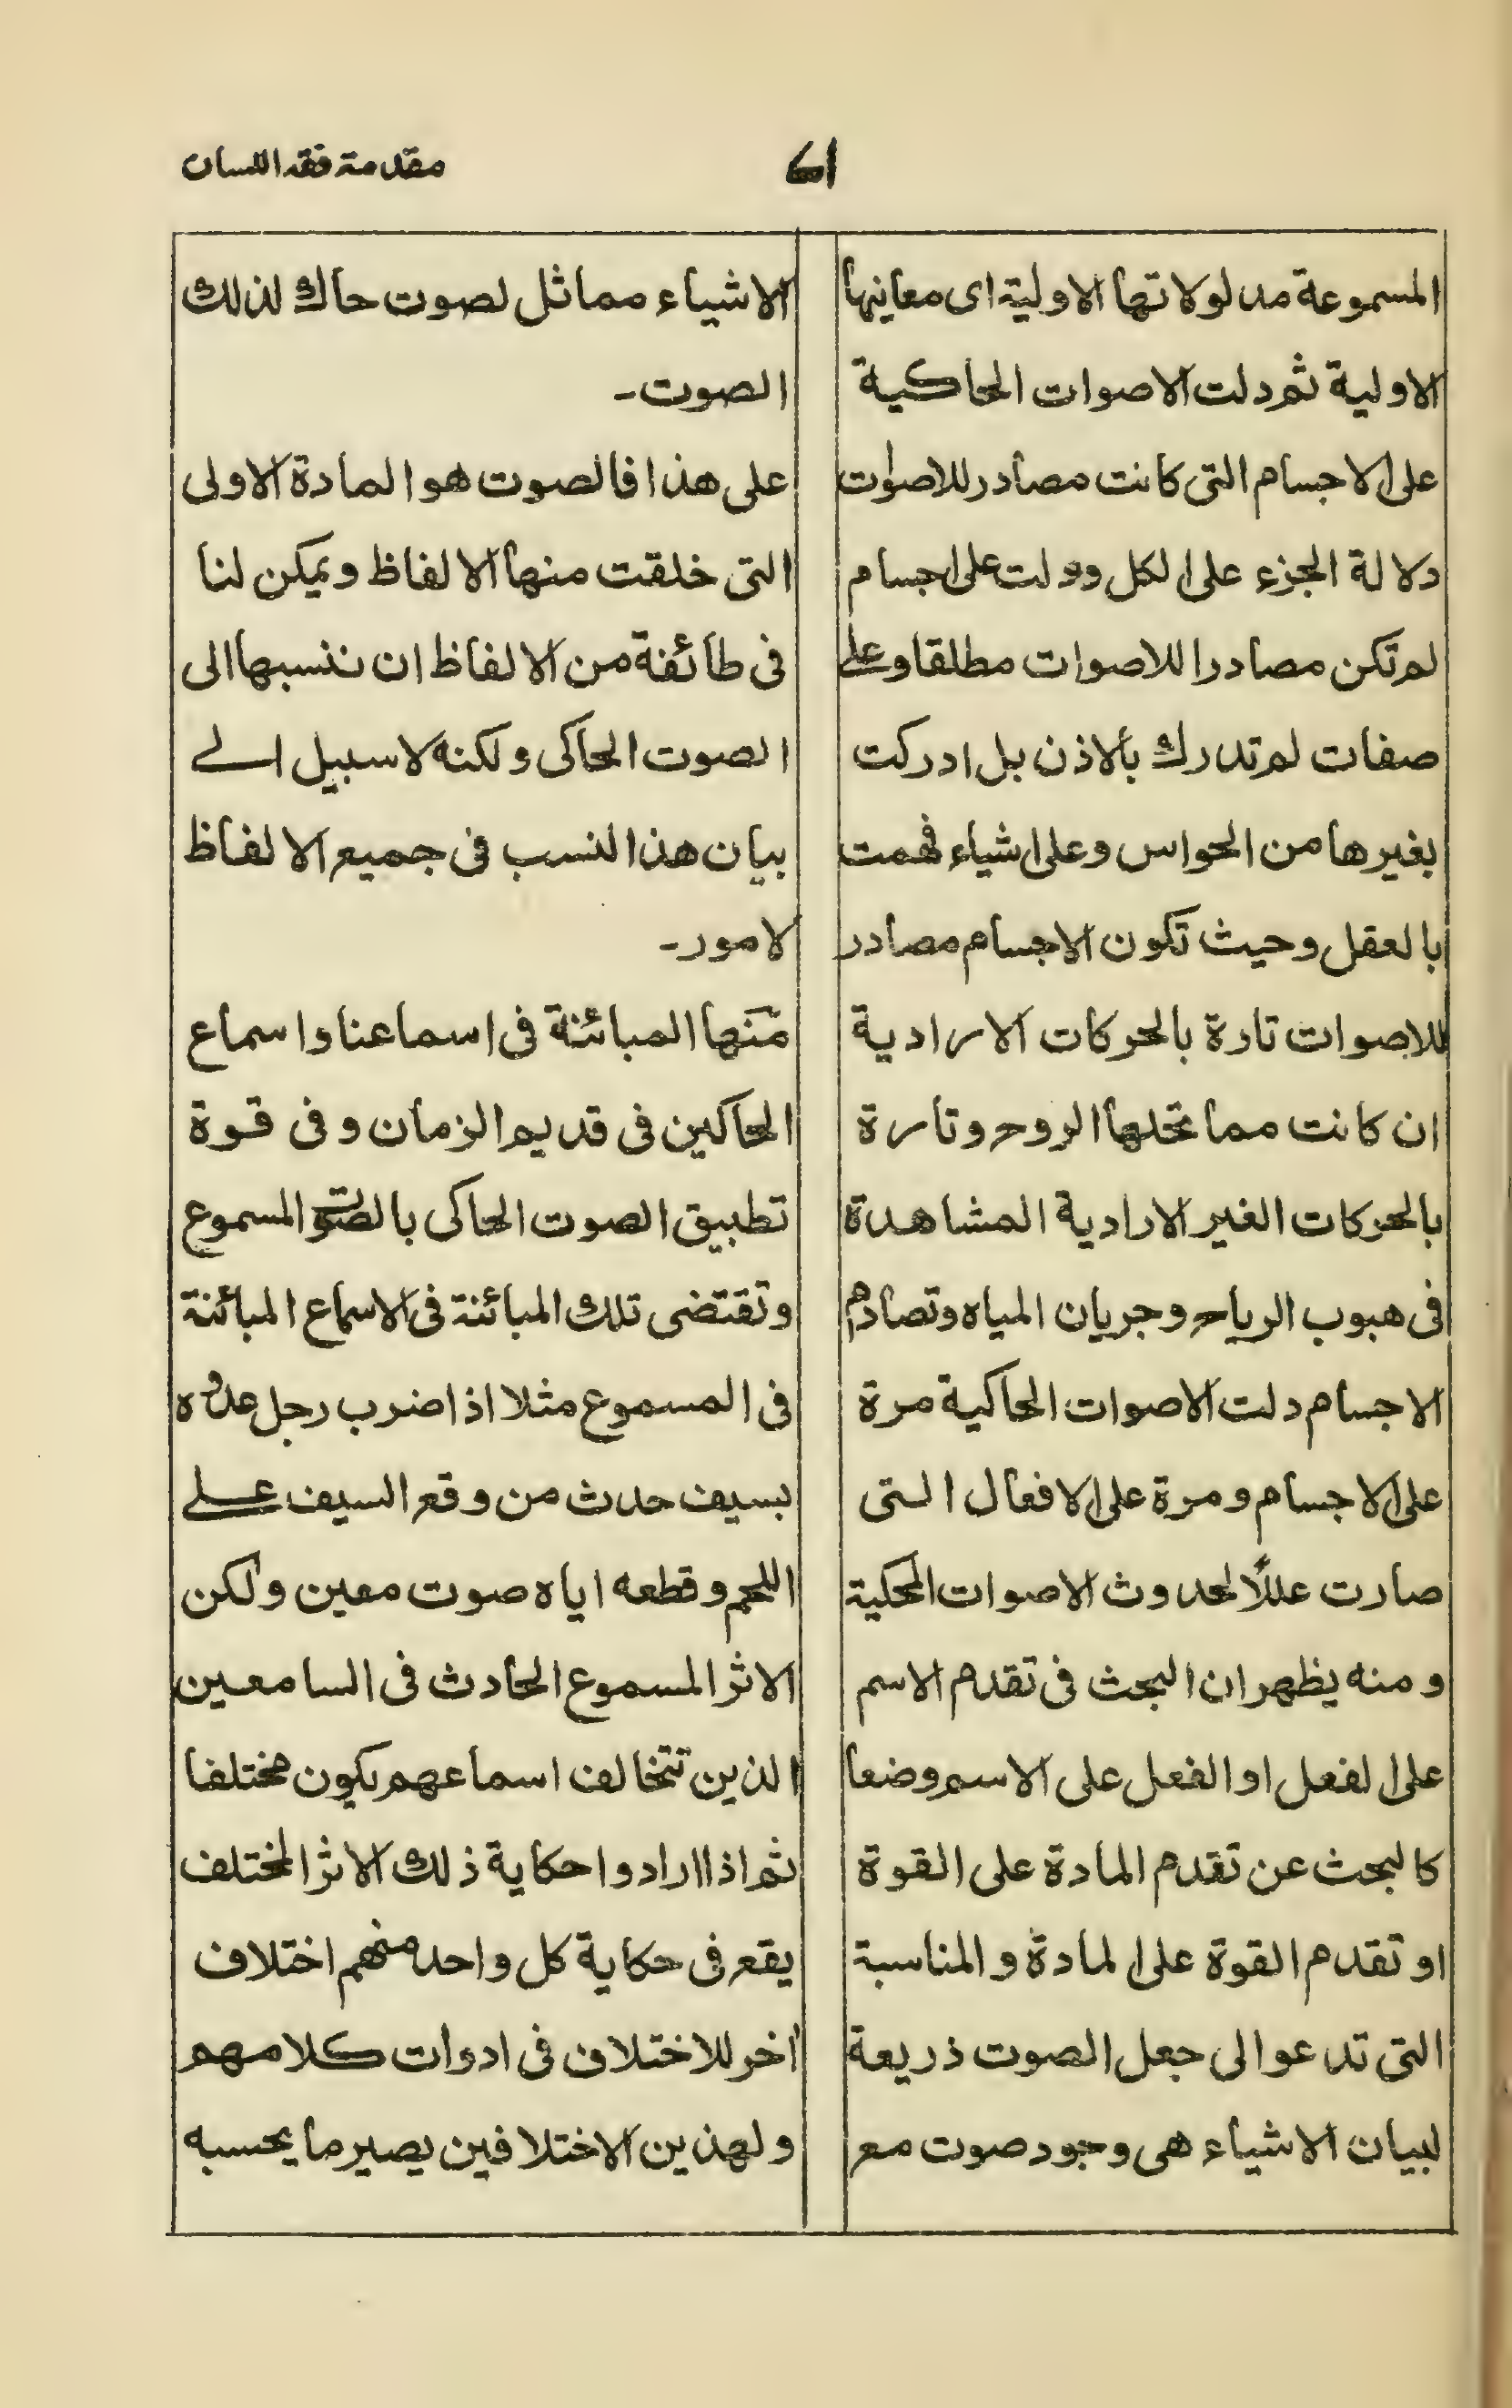 مقدمة فقه اللسان
المسموعة مدلولاتها الاولية اى معانيها
الاولية ثم دلت الاصوات الحاكية
على الاجسام التى كانت مصادر للاصوات
دلالة الجزء على الكل ودلت على اجسام
لم تكن مصادرا للاصوات مطلقا وعلى
صفات لم تدرك بالاذن بل ادركت
بغيرها من الحواس وعلى اشياء فهمت
بالعقل وحيث تكون الاجسام مصادر
للاصوات تارة بالحركات الارادية
ان كانت مما تحلها الروح وتارة
بالحركات الغير الارادية المشاهدة
فى هبوب الرياح وجريان المياه وتصادم
الاجسام دلت الاصوات الحاكية مرة
على الاجسام ومرة على الافعال التى
صارت عللًا لحدوث الاصوات المحكية
ومنه يظهر ان البحث فى تقدم الاسم
على الفعل او الفعل على الاسم وضعا
كالبحث عن تقدم المادة على القوة
او تقدم القوة على المادة والمناسبة
التى تدعو الى جعل الصوت ذريعة
لبيان الاشياء هى وجود صوت مع
الاشياء مماثل لصوت حاك لذلك
الصوت۔
على هذا فالصوت هو المادة الاولى
التى خلقت منها الالفاظ ويمكن لنا
فى طائفة من الالفاظ ان ننسبها الى
الصوت الحاكى ولكنه لا سبيل الى
بيان هذا النسب فى جميع الالفاظ
لامور۔
منها المبائنة فى اسماعنا واسماع
الحاكين فى قديم الزمان وفى قوة
تطبيق الصوت الحاكى بالصوت المسموع
وتقتضى تلك المبائنة فى الاسماع المبائنة
فى المسموع مثلا اذا ضرب رجل عدوه
بسيف حدث من وقع السيف على
اللحم وقطعه اياه صوت معين ولكن
الاثر المسموع الحادث فى السامعين
الذين تتخالف اسماعهم يكون مختلفا
ثم اذا ارادوا حكاية ذلك الاثر المختلف
يقع فى حكاية كل واحد منهم اختلاف
اخر للاختلاف فى ادوات كلامهم
ولهذين الاختلافين يصير ما يحسبه